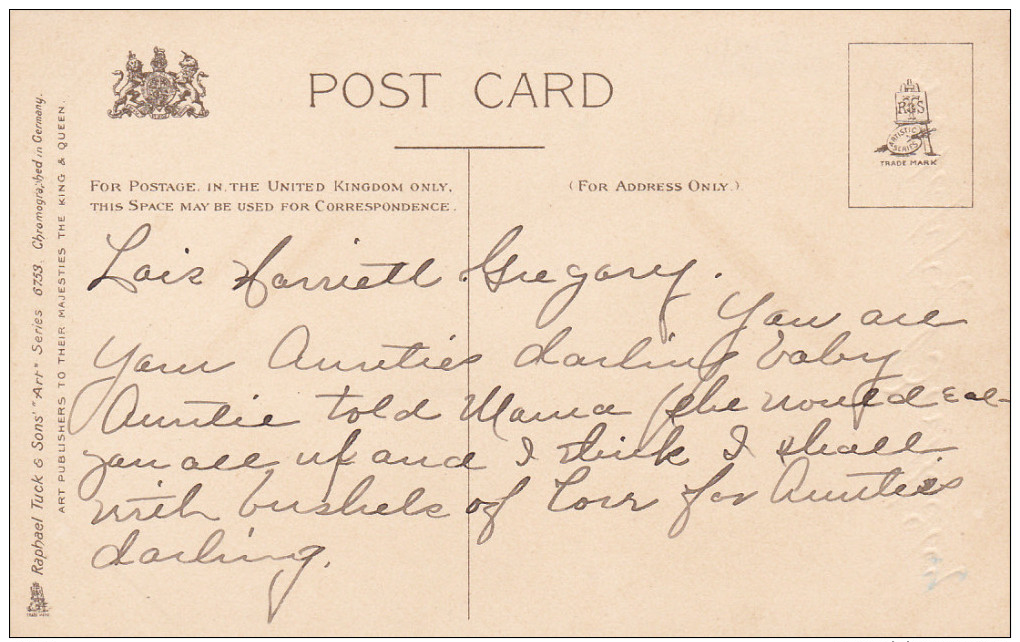 POST CARD
FOR POSTAGE IN THE UNITED KINGDOM ONLY,
THIS SPACE MAY BE USED FOR CORRESPONDENCE.
(FOR ADDRESS ONLY.)
R T S
ARTISTIC SERIES
TRADE MARK
Lois Harriett Gregory.
You are
Your Aunties darling baby
Auntie told Mama she would eat
you all up and I think I shall
with bushels of love for Aunties
darling.
Raphael Tuck & Sons' "Art" Series 6753. Chromographed in Germany.
ART PUBLISHERS TO THEIR MAJESTIES THE KING & QUEEN.